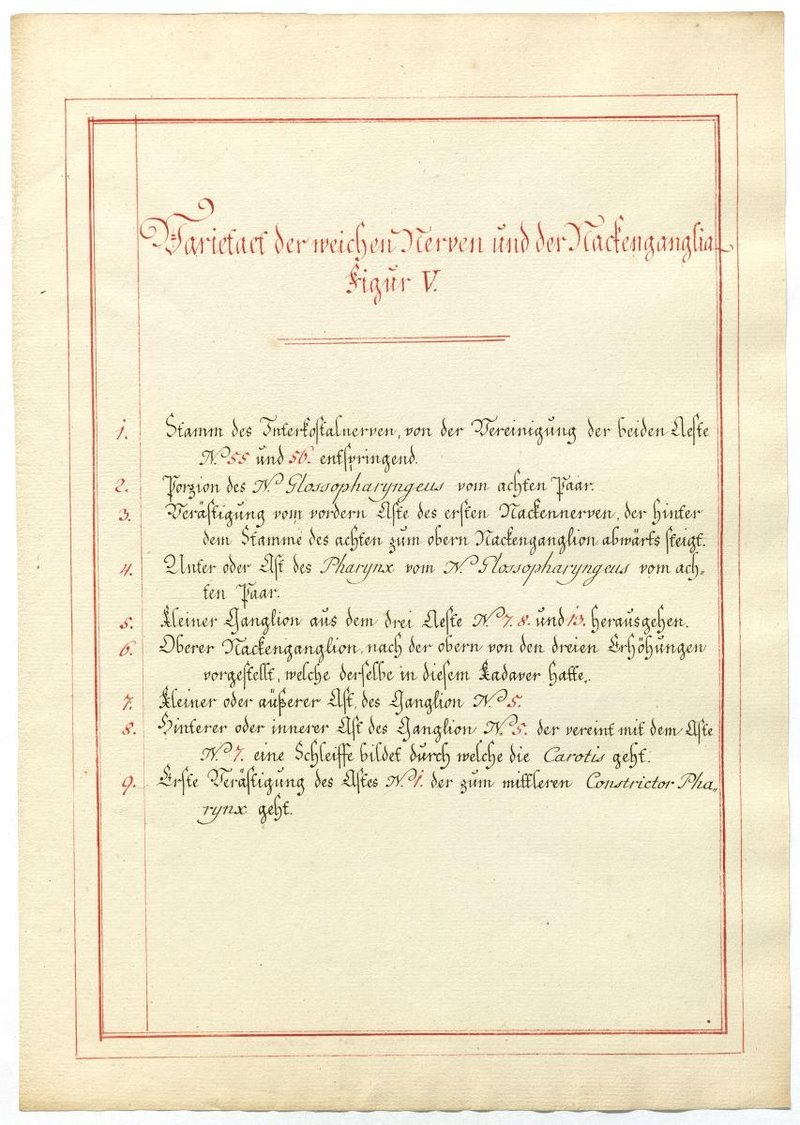 Varietaet der weichen Nerven und der Nackenganglia
Figur V.
1. Stamm des Interkostalnerven, von der Vereinigung der beiden Aeste
N.º 55 und 56. entspringend.
2. Porzion des N. Glossopharyngeus vom achten Paar.
3. Verästigung vom vordern Aste des ersten Nackennerven, der hinter
dem Stamme des achten zum obern Nackenganglion abwärts steigt.
4. Unter oder Ast des Pharynx vom N. Glossopharyngeus vom ach-
ten Paar.
5. Kleiner Ganglion aus dem drei Aeste N.º 7. 8. und 13. herausgehen.
6. Oberer Nackenganglion, nach der obern von den dreien Erhöhungen
vorgestellt, welche derselbe in diesem Kadaver hatte.
7. Kleiner oder äußerer Ast, des Ganglion N.º 5.
8. Hinterer oder innerer Ast des Ganglion N.º 5. der vereint mit dem Aste
N.º 7. eine Schleiffe bildet durch welche die Carotis geht.
9. Erste Verästigung des Astes N.º 1. der zum mittleren Constrictor Pha-
rynx geht.